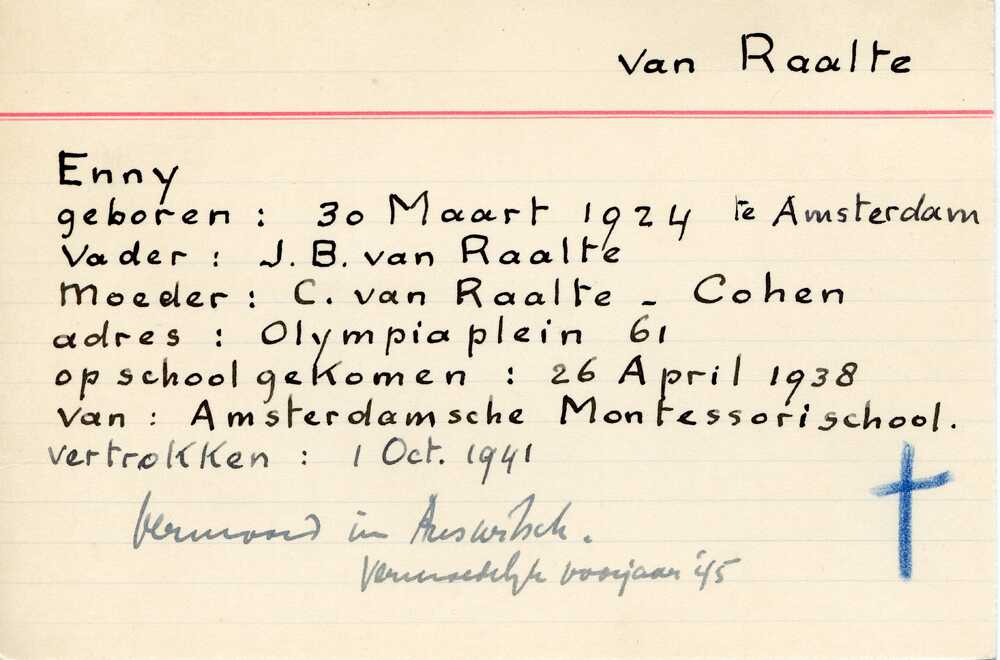 van Raalte
Enny
geboren : 30 Maart 1924 te Amsterdam
Vader : J. B. van Raalte
Moeder : C. van Raalte - Cohen
adres : Olympiaplein 61
op school gekomen : 26 April 1938
van : Amsterdamsche Montessorischool.
vertrokken : 1 Oct. 1941
Vermoord in Auswitsch.
Vermoedelijk voorjaar '45